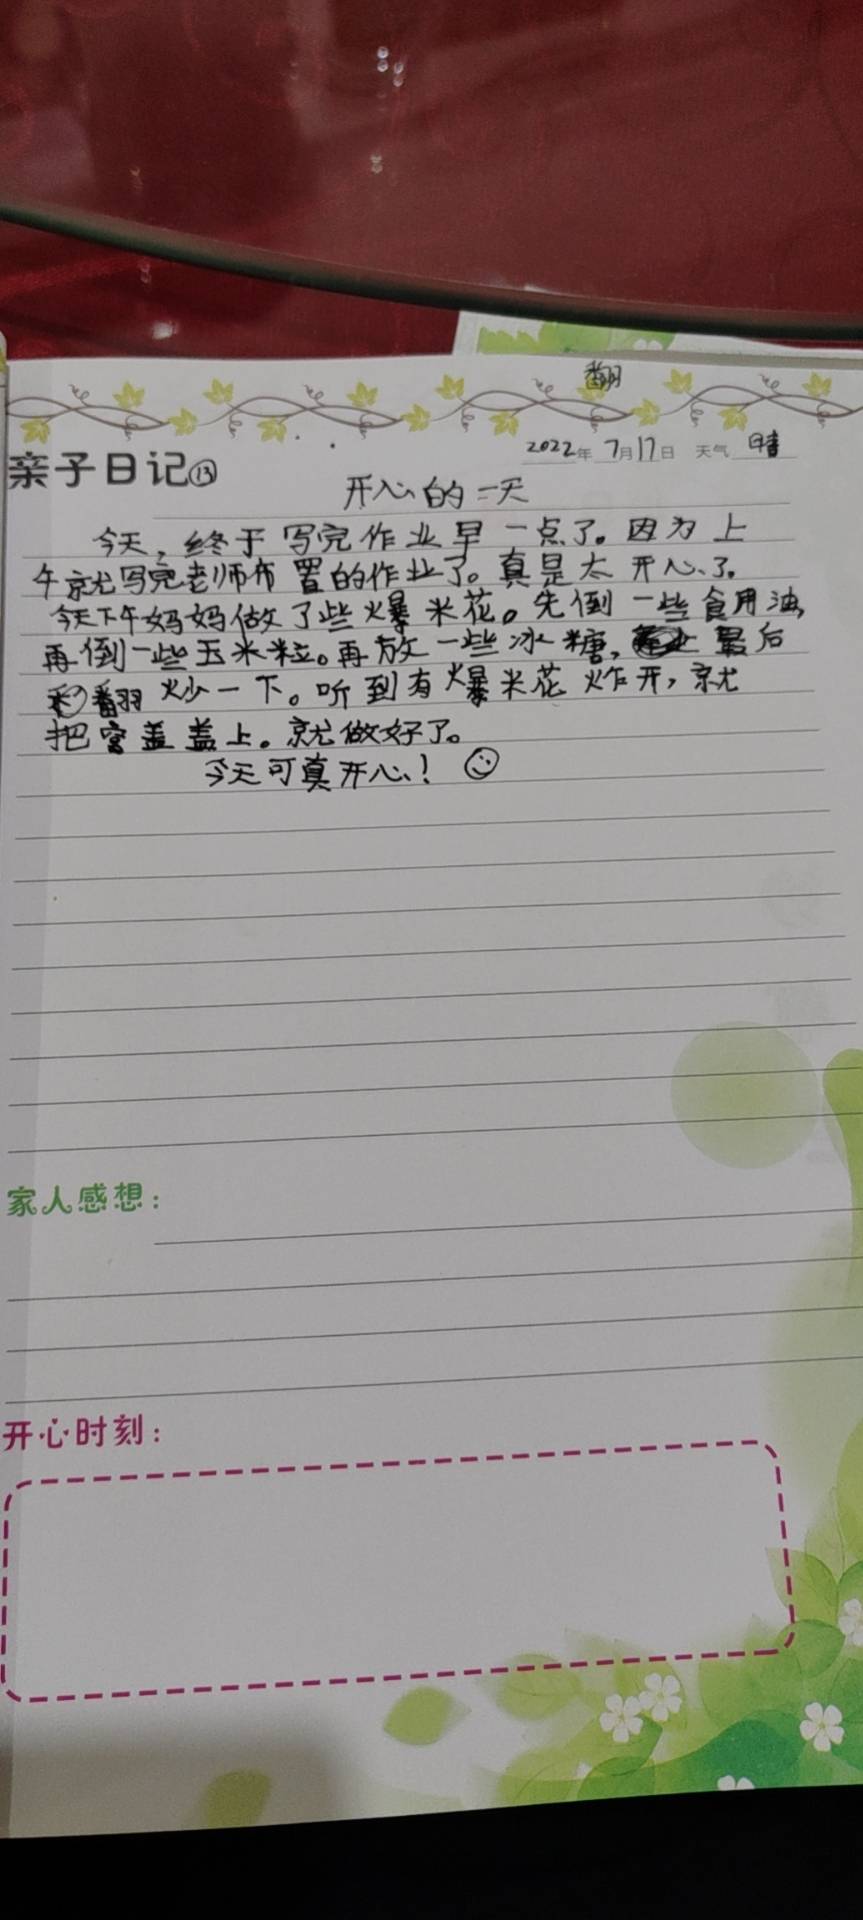 翻
2022年 7月17日 天气 晴
亲子日记⑬
开心的一天
今天，终于写完作业早一点了。因为上
午就写完老师布置的作业了。真是太开心了。
今天下午妈妈做了些爆米花。先倒一些食用油，
再倒一些玉米粒。再放一些冰糖，最后
翻炒一下。听到有爆米花炸开，就
把盖盖上。就做好了。
今天可真开心！
家人感想：
开心时刻：